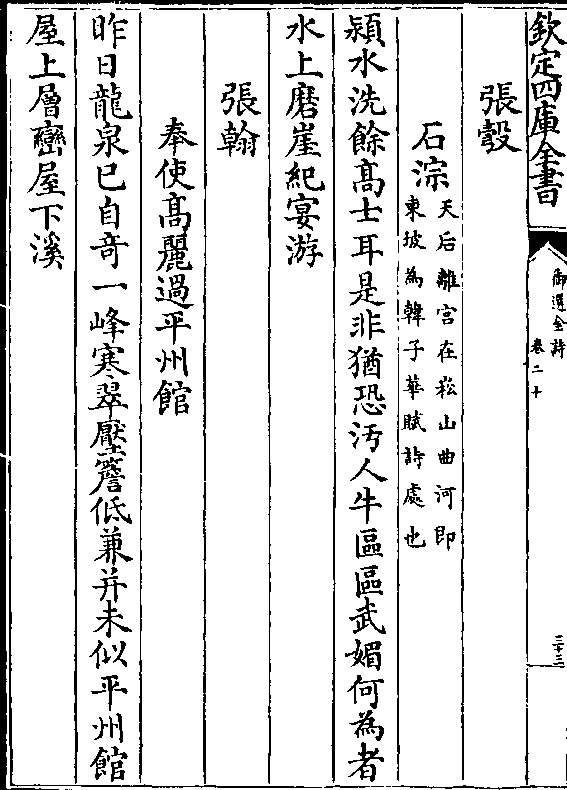 欽定四庫全書
御選金詩
卷二十
三十三
張瑴
石淙
天后離宮在崧山曲河即
東坡為韓子華賦詩處也
潁水洗餘髙士耳是非猶恐汚人牛區區武媚何為者
水上磨崖紀宴游
張翰
奉使髙麗過平州館
昨日龍泉已自竒一峰寒翠壓簷低兼并未似平州館
屋上層巒屋下溪